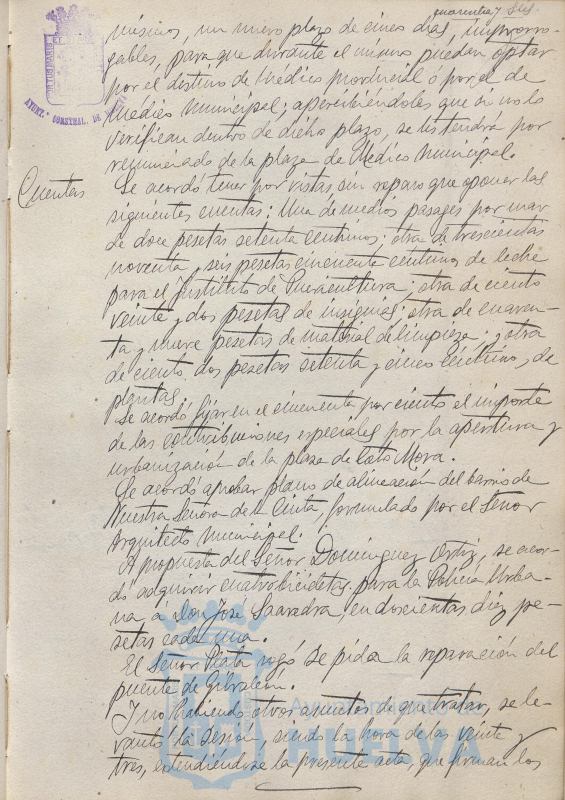 cuarenta y seis.
mismos, un nuevo plazo de cinco dias, improrro-
gables, para que durante el mismo puedan optar
por el destino de Medico provincial ó por el de
Medico Municipal; apercibiéndoles que si no lo
verifican dentro de dicho plazo, se les tendrá por
renunciado de la plaza de Medico Municipal.
Cuentas
Se acordó tener por vistas sin reparo que oponer las
siguientes cuentas: Una de medios pasages por mar
de doce pesetas setenta centimos; otra de trescientas
noventa y seis pesetas cincuenta centimos de leche
para el Instituto de Puericultura; otra de ciento
veinte y dos pesetas de insignias; otra de cuaren-
ta y nueve pesetas de material de limpieza; y otra
de ciento dos pesetas setenta y cinco centimos, de
plantas.
Se acordó fijar en el cincuenta por ciento el importe
de las contribuciones especiales por la apertura y
urbanización de la plaza de Mora.
Se acordó aprobar plano de alineación del barrio de
Nuestra Señora de la Cinta, formulado por el Señor
Arquitecto municipal.
A propuesta del Señor Dominguez Ortiz, se acor-
dó adquirir cuatro bicicletas para la Policia Urba-
na á Don José Saavedra, en doscientas diez pe-
setas cada una.
El Señor Plata rogó se pida la reparación del
puente de Gibraleón.
Y no habiendo otros asuntos de que tratar, se le-
vantó la sesión, siendo la hora de las veinte y
tres, extendiéndose la presente acta que firman los
Ayuntamiento de
HUELVA
AYUNT. CONSTNAL. DE